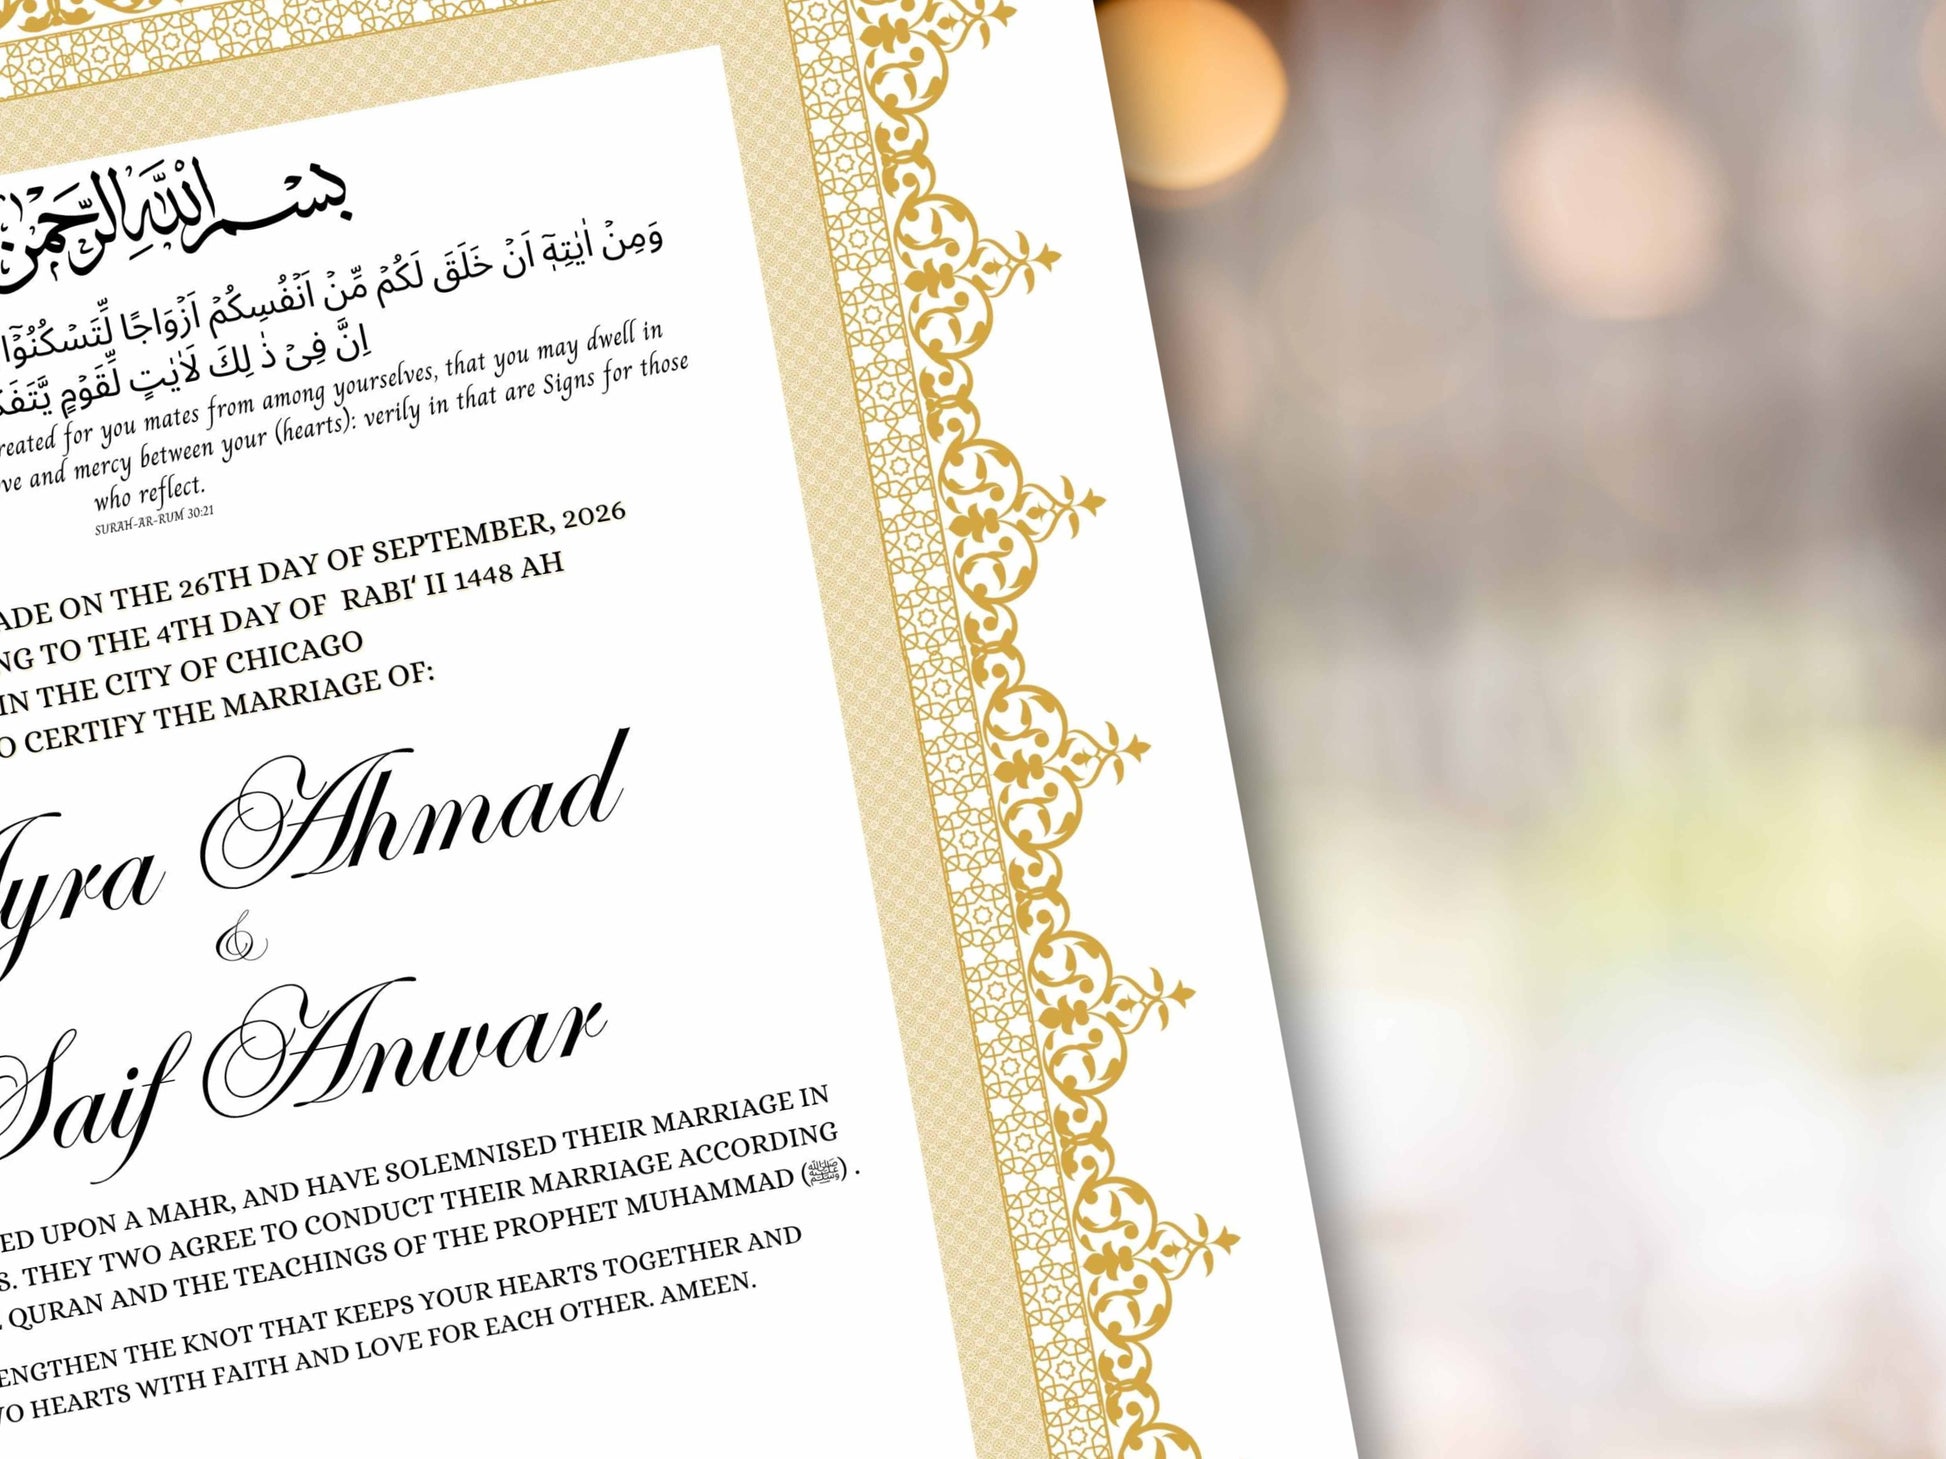 بِسْمِ اللَّهِ الرَّحْمٰنِ
وَمِنْ اٰيٰتِهٖۤ اَنْ خَلَقَ لَكُمْ مِّنْ اَنْفُسِكُمْ اَزْوَاجًا لِّتَسْكُنُوْۤا
اِنَّ فِىْ ذٰ لِكَ لَاٰيٰتٍ لِّقَوْمٍ
reated for you mates from among yourselves, that you may dwell in
ve and mercy between your (hearts): verily in that are Signs for those
who reflect.
SURAH-AR-RUM 30:21
ADE ON THE 26TH DAY OF SEPTEMBER, 2026
NG TO THE 4TH DAY OF RABI‘ II 1448 AH
IN THE CITY OF CHICAGO
O CERTIFY THE MARRIAGE OF:
yra Ahmad
&
Saif Anwar
ED UPON A MAHR, AND HAVE SOLEMNISED THEIR MARRIAGE IN
S. THEY TWO AGREE TO CONDUCT THEIR MARRIAGE ACCORDING
QURAN AND THE TEACHINGS OF THE PROPHET MUHAMMAD (ﷺ) .
ENGTHEN THE KNOT THAT KEEPS YOUR HEARTS TOGETHER AND
O HEARTS WITH FAITH AND LOVE FOR EACH OTHER. AMEEN.